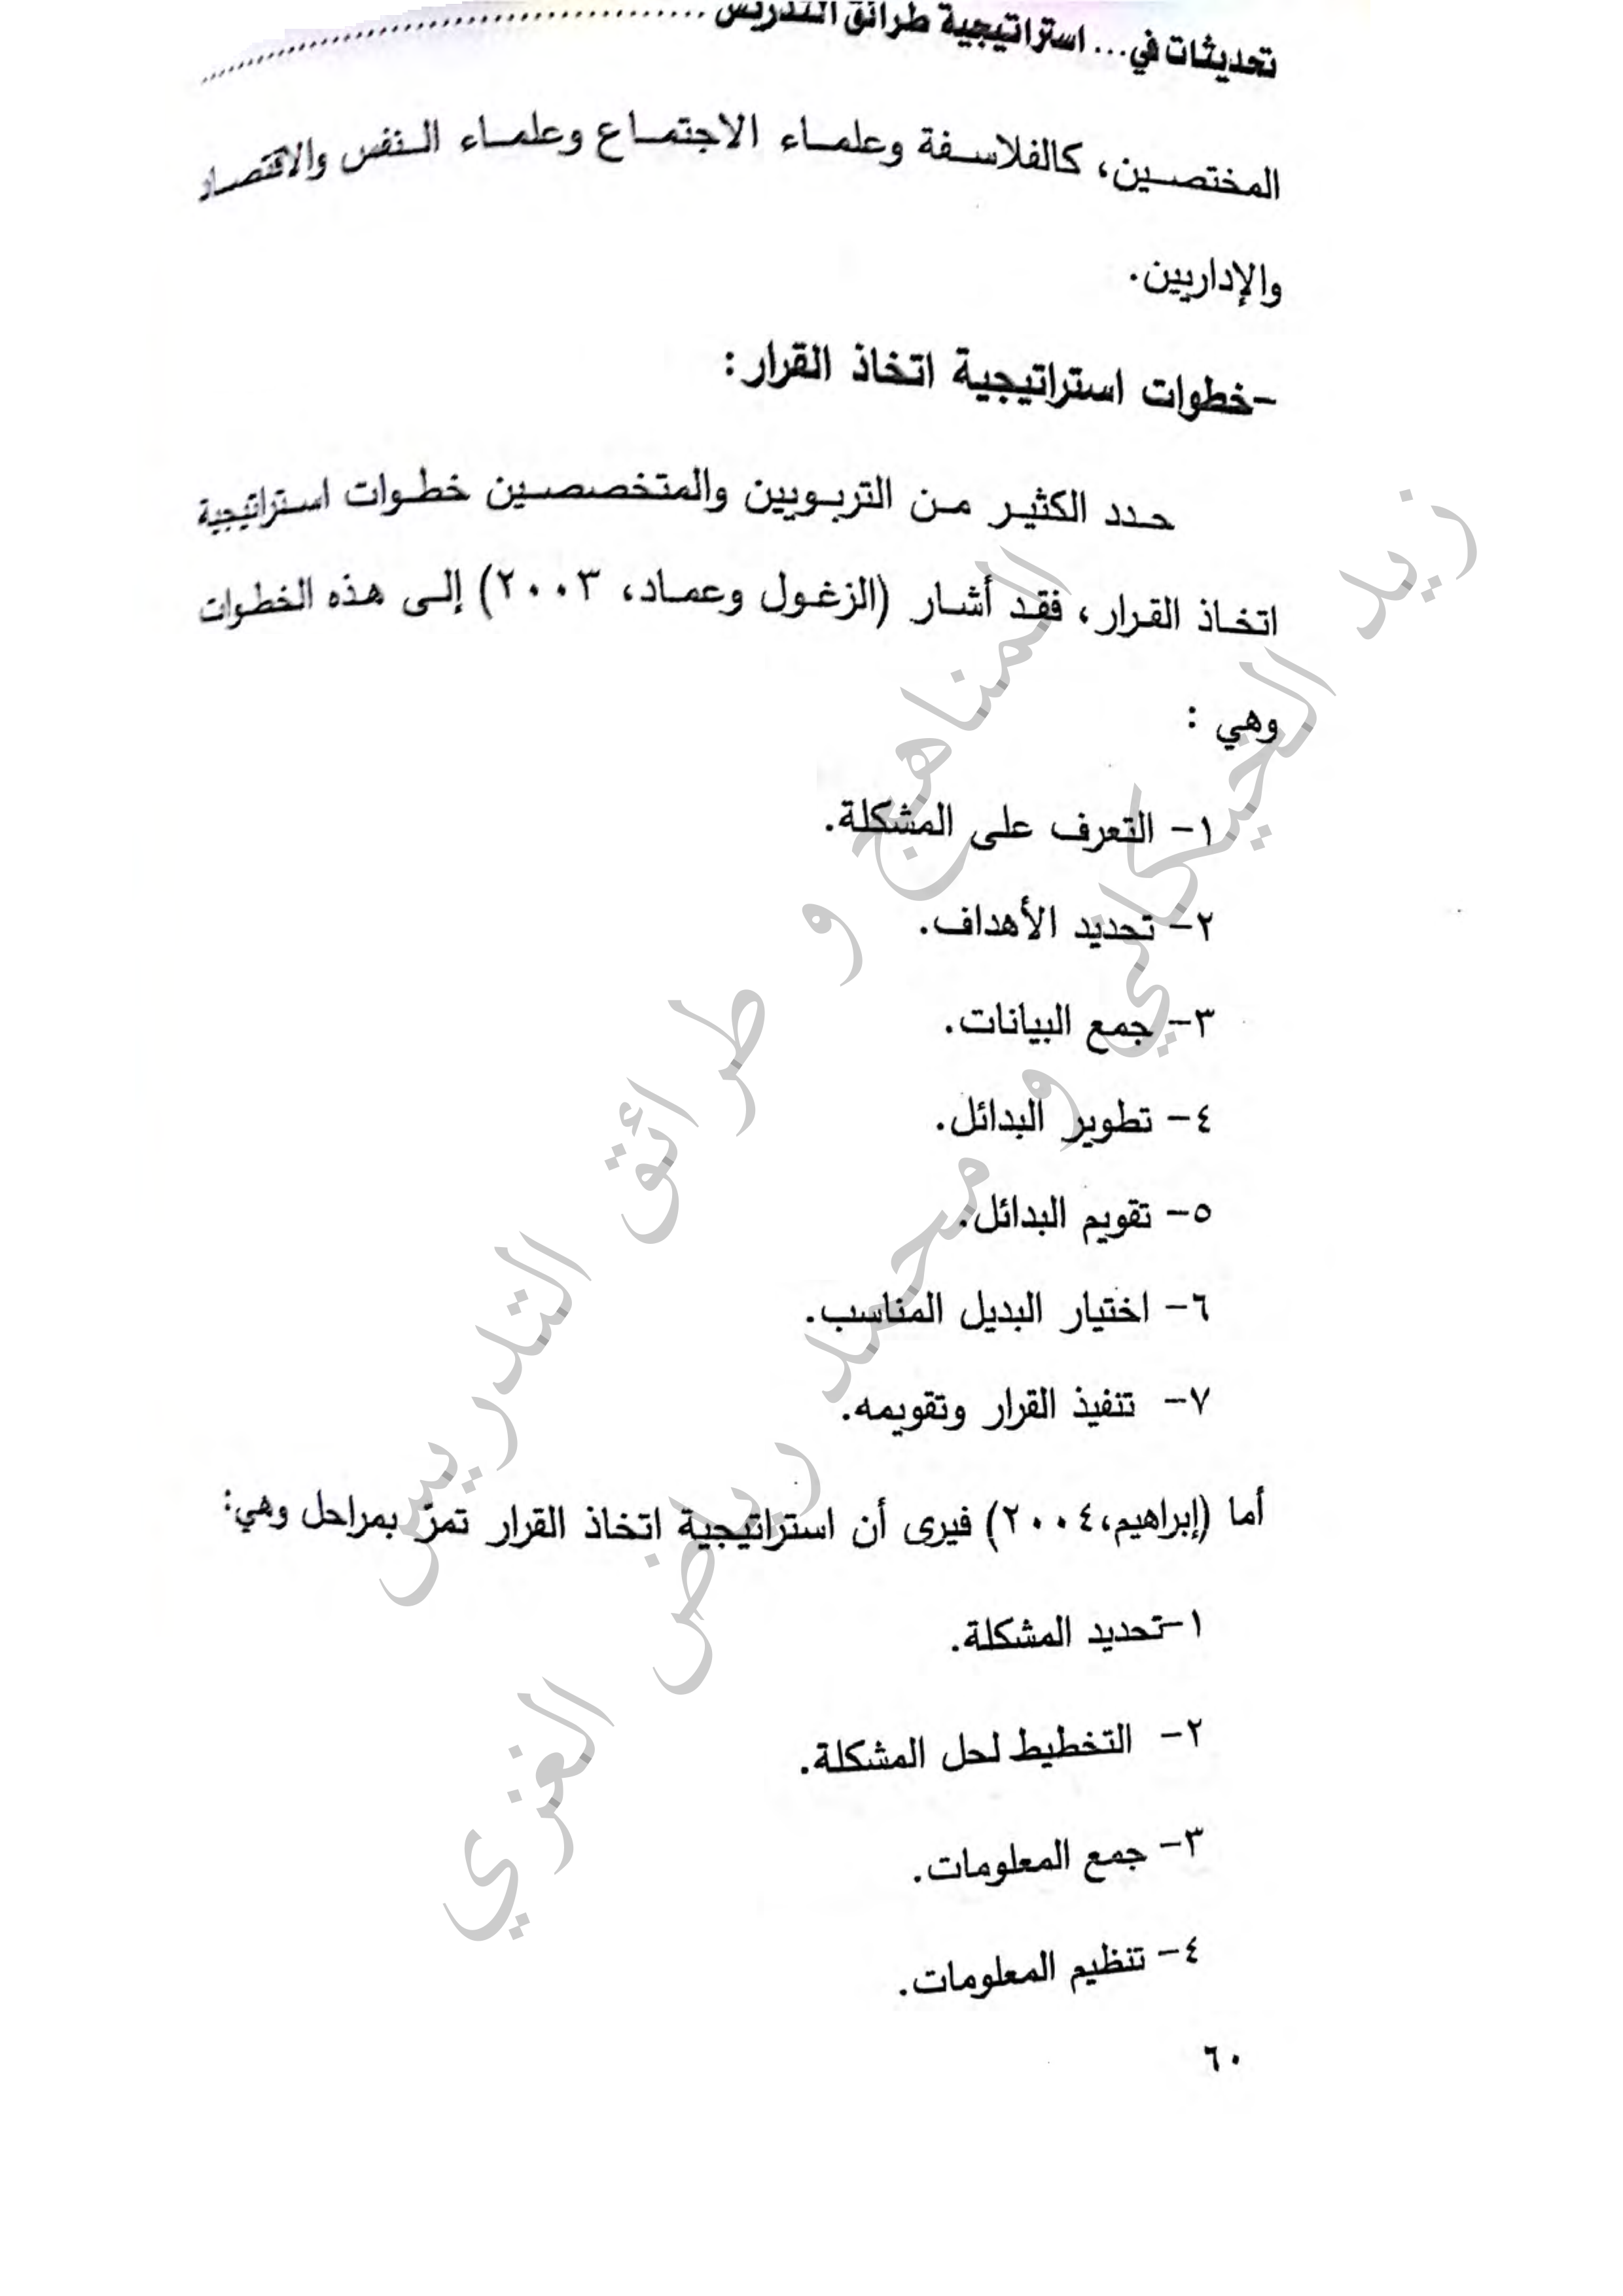 تحديثات في... استراتيجية طرائق التدريس
المختصين، كالفلاسفة وعلماء الاجتماع وعلماء النفس والاقتصاد
والإداريين.
-خطوات استراتيجية اتخاذ القرار:
حدد الكثير من التربويين والمتخصصين خطوات استراتيجية
اتخاذ القرار، فقد أشار (الزغول وعماد، ٢٠٠٣) إلى هذه الخطوات
وهي :
١- التعرف على المشكلة.
٢- تحديد الأهداف.
٣- جمع البيانات.
٤- تطوير البدائل.
٥- تقويم البدائل.
٦- اختيار البديل المناسب.
٧- تنفيذ القرار وتقويمه.
أما (إبراهيم،٢٠٠٤) فيرى أن استراتيجية اتخاذ القرار تمرّ بمراحل وهي:
١-تحديد المشكلة.
٢- التخطيط لحل المشكلة.
٣- جمع المعلومات.
٤- تنظيم المعلومات.
٦٠
المناهج و طرائق التدريس
زيد الخيكاني و محمد رياض الغزي